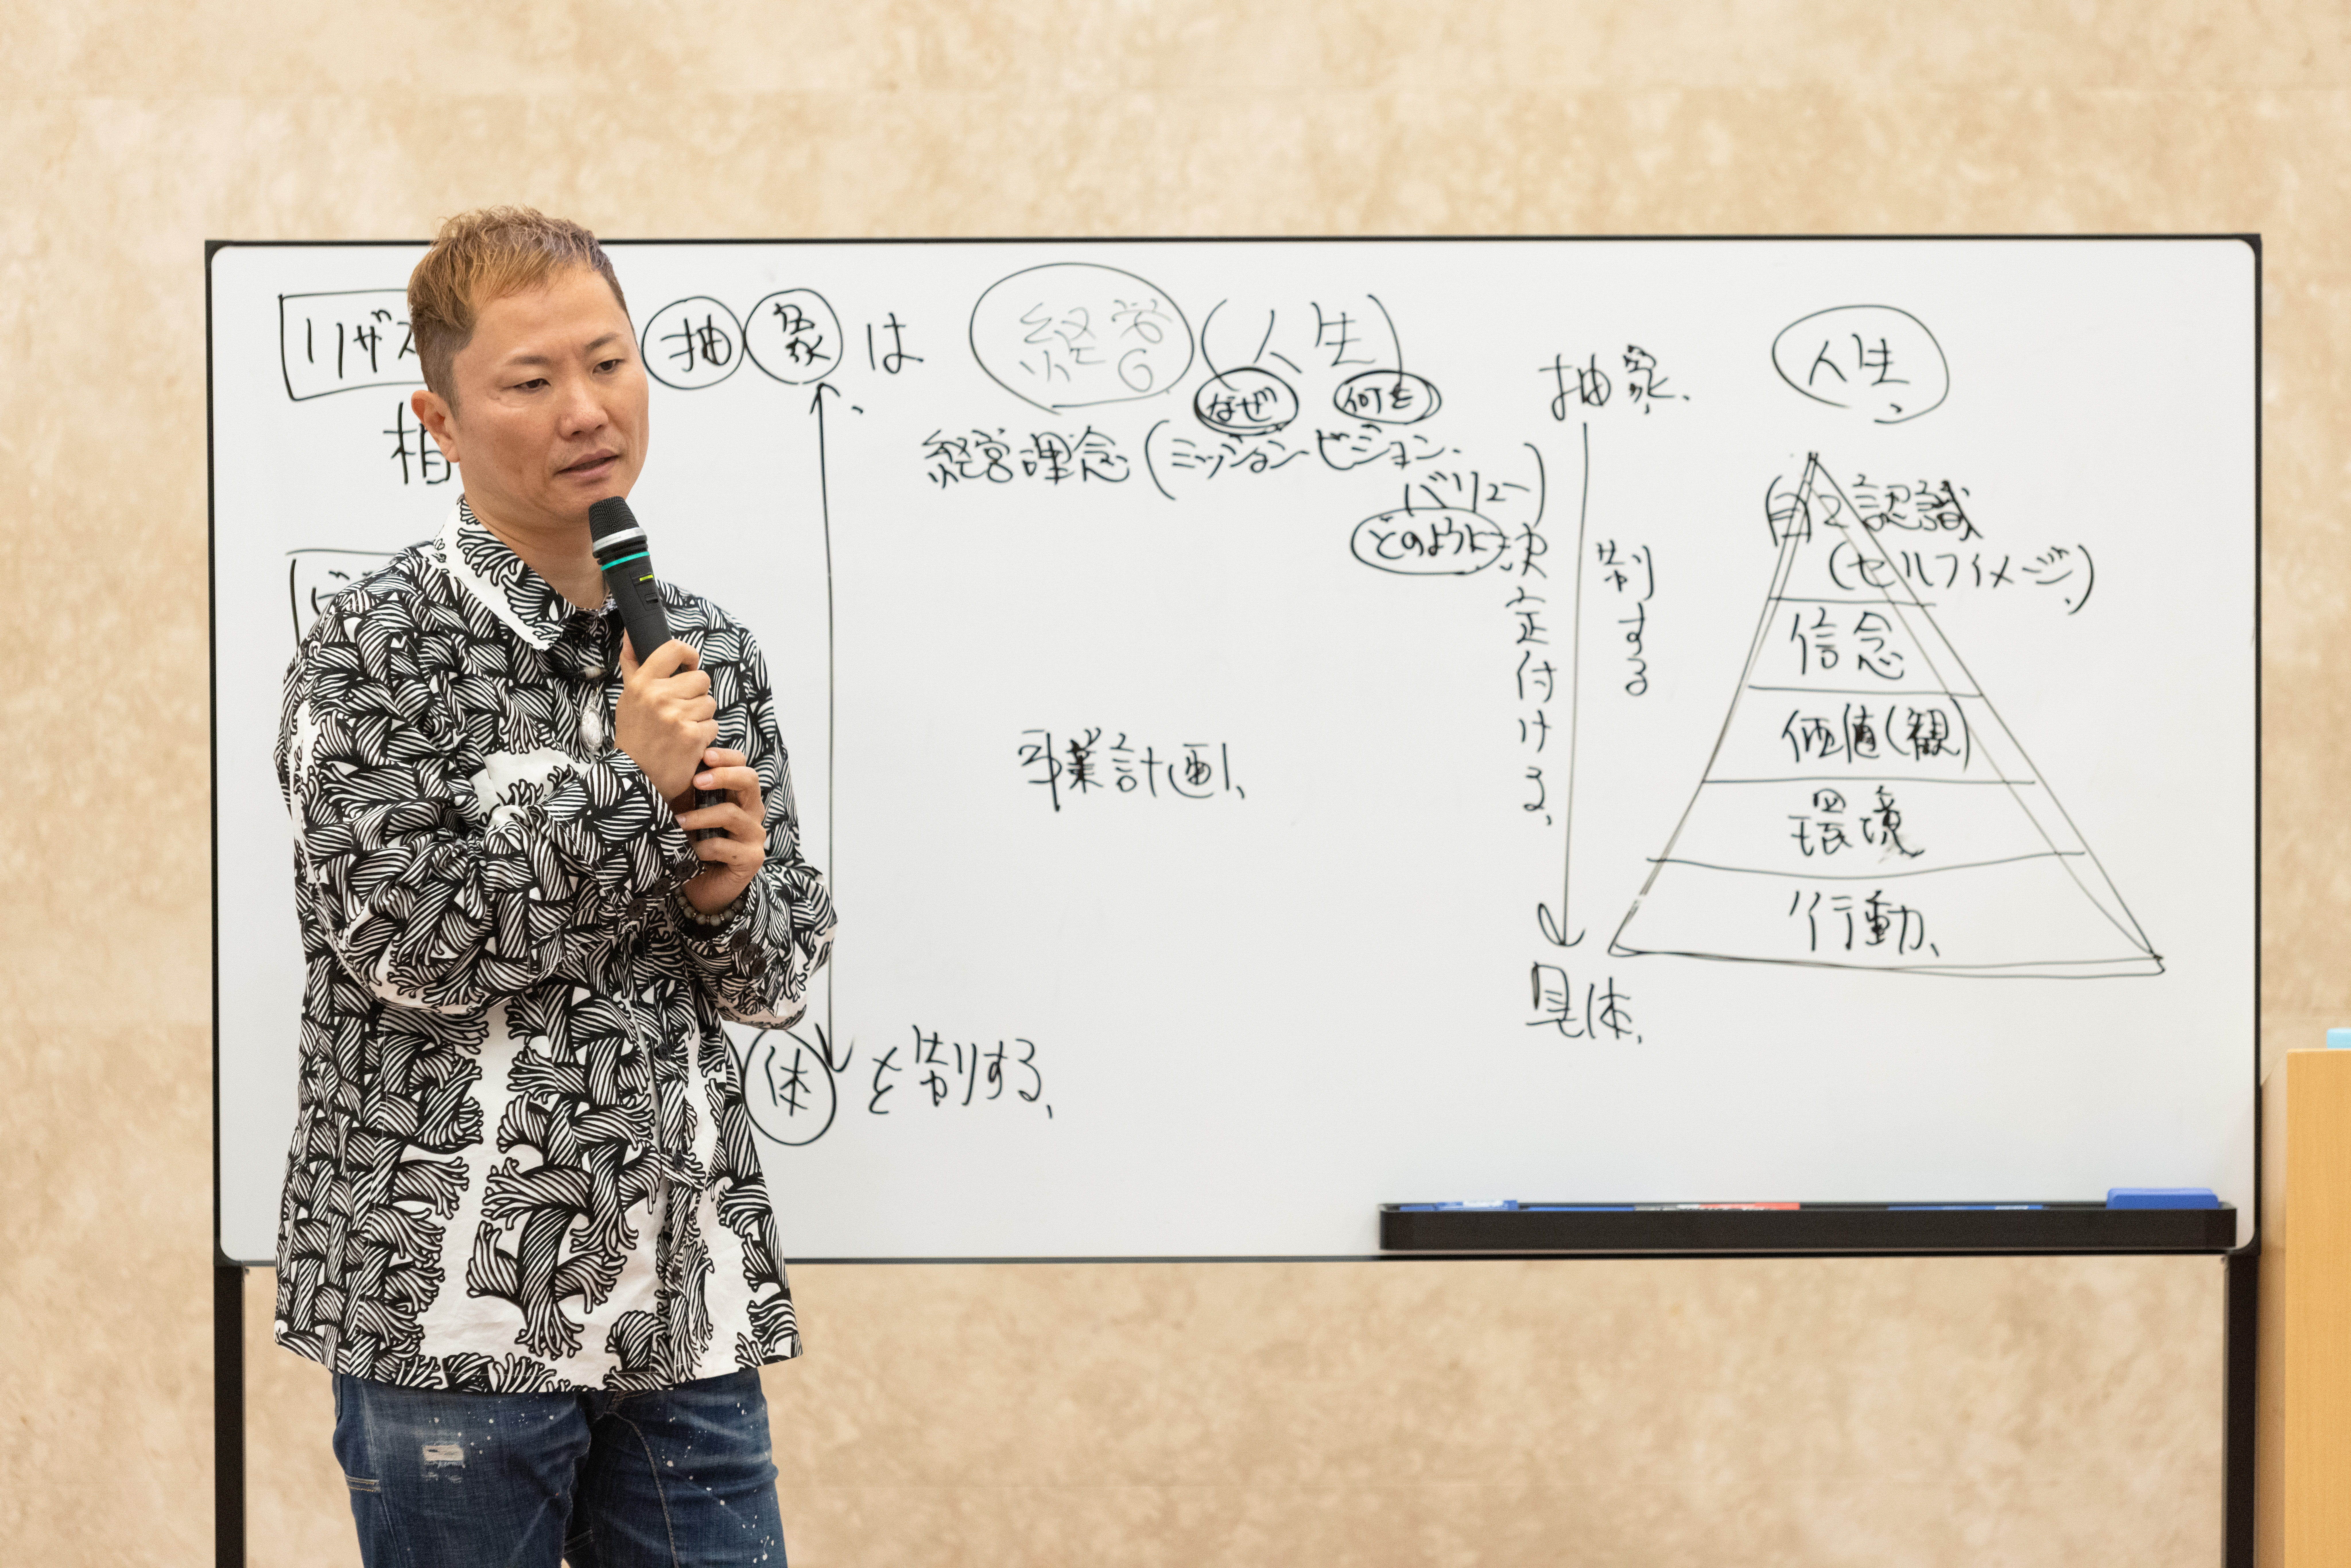 リザ
抽象は 経営(人生)
なぜ 何を
経営理念(ミッション、ビジョン、
バリュー)
どのように
事業計画、
体を制する、
抽象、
決定付ける、
制する
具体、
人生、
自己認識
(セルフイメージ)
信念
価値(観)
環境
行動、